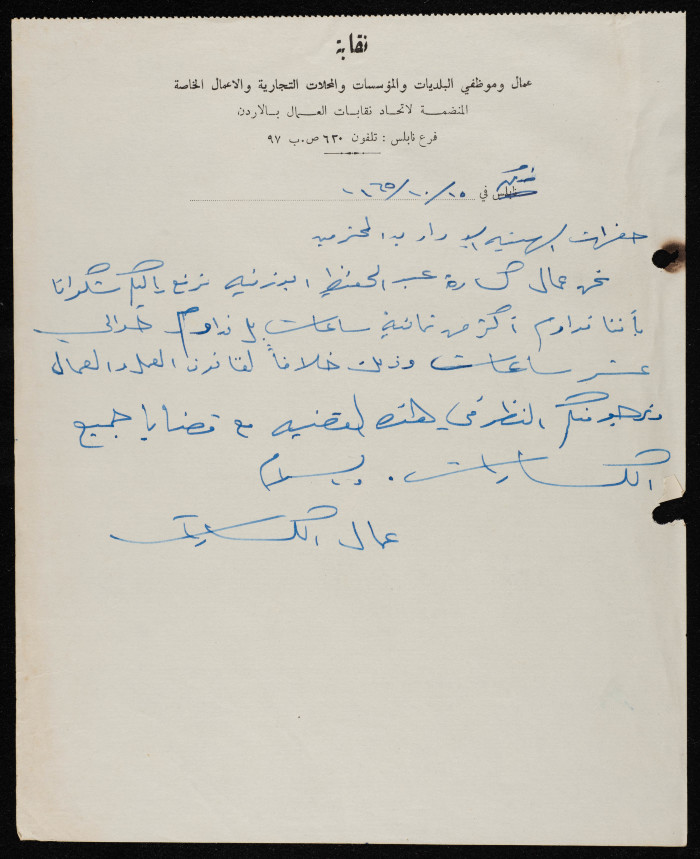 نقابة
عمال وموظفي البلديات والمؤسسات والمحلات التجارية والاعمال الخاصة
المنضمة لاتحاد نقابات العمال بالاردن
فرع نابلس : تلفون ٦٣٠ ص.ب ٩٧
نابلس في ١٥/١٠/١٩٦٥
حضرات الهيئة الادارية المحترمين
نحن عمال كسارة عبد الحفيظ نرفع اليكم شكوانا
بأننا نداوم اكثر من ثمانية ساعات بل نداوم حوالي
عشر ساعات وذلك خلافاً لقانون العمل والعمال
ونرجو منكم النظر في هذه القضيه مع قضايا جميع
الكسارات .
عمال الكسارات